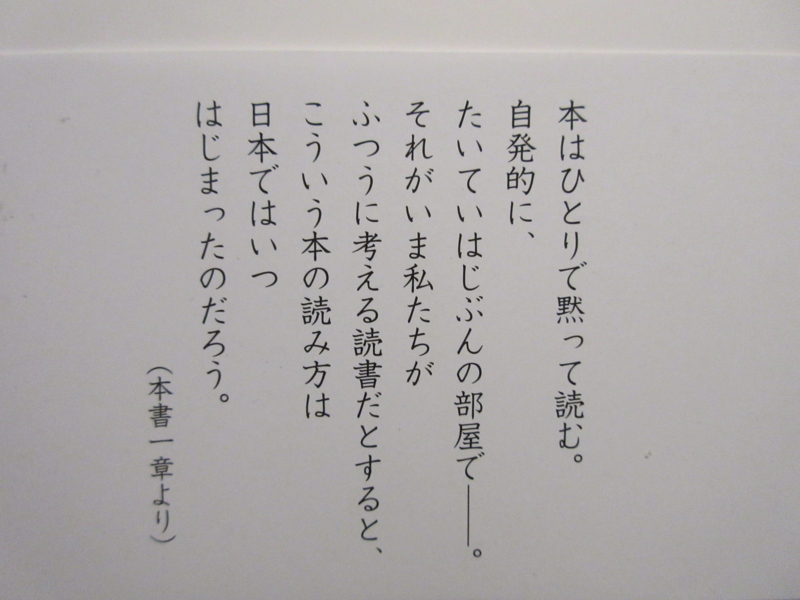 本はひとりで黙って読む。
自発的に、
たいていはじぶんの部屋で――。
それがいま私たちが
ふつうに考える読書だとすると、
こういう本の読み方は
日本ではいつ
はじまったのだろう。
（本書一章より）